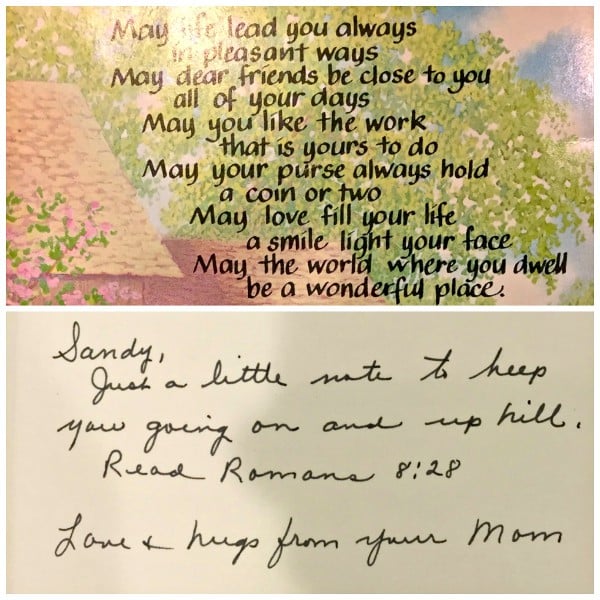 May life lead you always
in pleasant ways
May dear friends be close to you
all of your days
May you like the work
that is yours to do
May your purse always hold
a coin or two
May love fill your life
a smile light your face
May the world where you dwell
be a wonderful place.
Sandy,
Just a little note to keep
you going on and up hill.
Read Romans 8:28
Love & hugs from your Mom